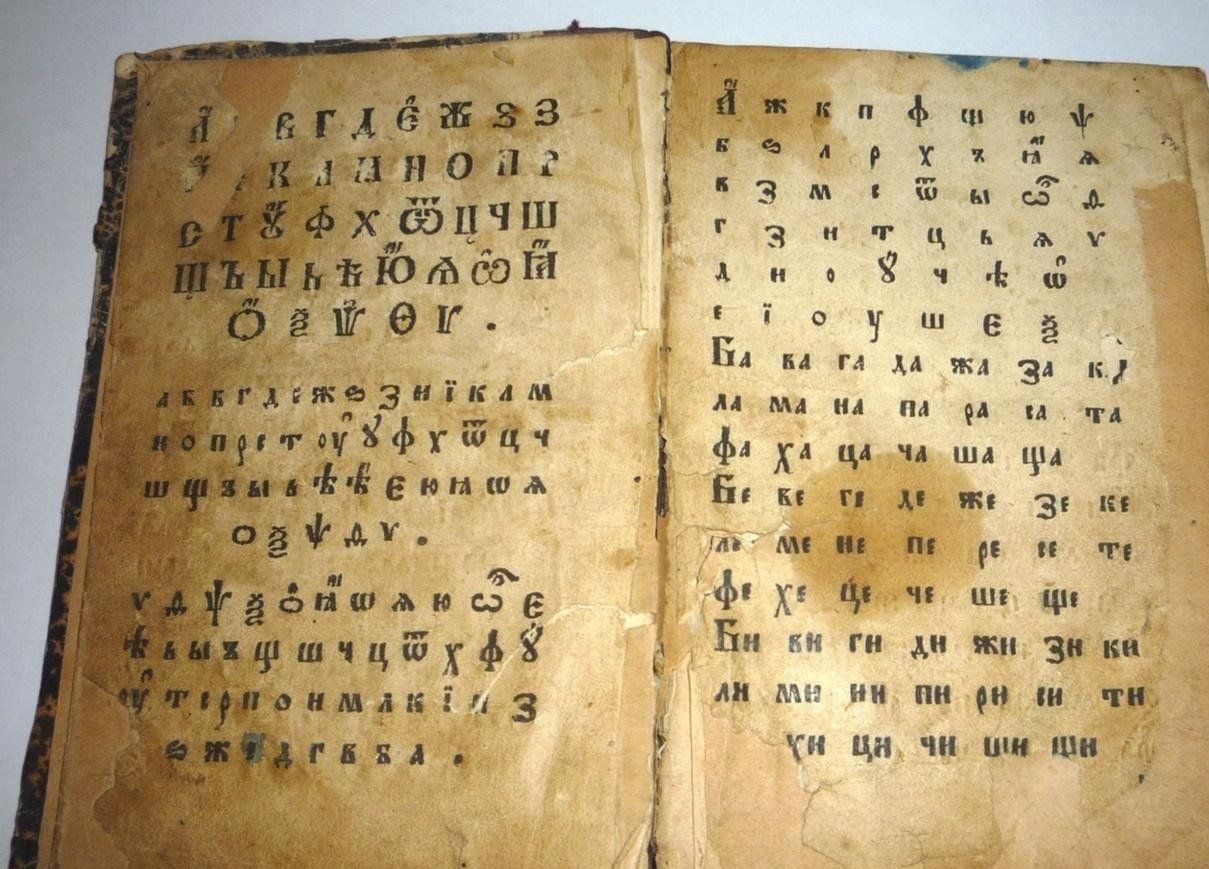 А҆ В Г Д Є҆ Ж Ѕ З
К Л М Н О П Р
С Т Ꙋ҆ Ф Х Ѿ Ц Ч Ш
Щ Ъ Ы Ь Ѣ Ю҆ Ѧ Ѽ Ꙗ҆
Ѻ҆ Ѯ Ѱ҆ Ѳ Ѵ .
а б в г д е ж ѕ з и ї к л м
н о п р с т оу҆ ꙋ ф х ѿ ц ч
ш щ ъ ы ь ѣ ѣ҆ є ю ꙗ ѡ ѧ
ѻ ѯ ѱ ѳ ѵ .
ѵ ѳ ѱ ѯ ѻ҆ ꙗ҆ ѡ ѧ ю ѽ є
ѣ ь ы ъ щ ш ч ц ѿ х ф ꙋ҆
оу҆ т с р п о н м л к ї и з
ѕ ж е д г в б а .
А҆ ж к п ф щ ю ѱ
б ѕ л р х ъ ꙗ҆ ѧ
в з м с ѿ ы ѽ ѳ
г з н т ц ь ѧ ѵ
д и о ꙋ҆ ч ѣ ѡ҆
е ї о у ш є ѯ
Ба ва га да жа за ка
ла ма на па ра са та
фа ха ца ча ша ща
Бе ве ге де же зе ке
ле ме не пе ре се те
фе хе це че ше ще
Би ви ги ди жи зи ки
ли ми ни пи ри си ти
хи ци чи ши щи